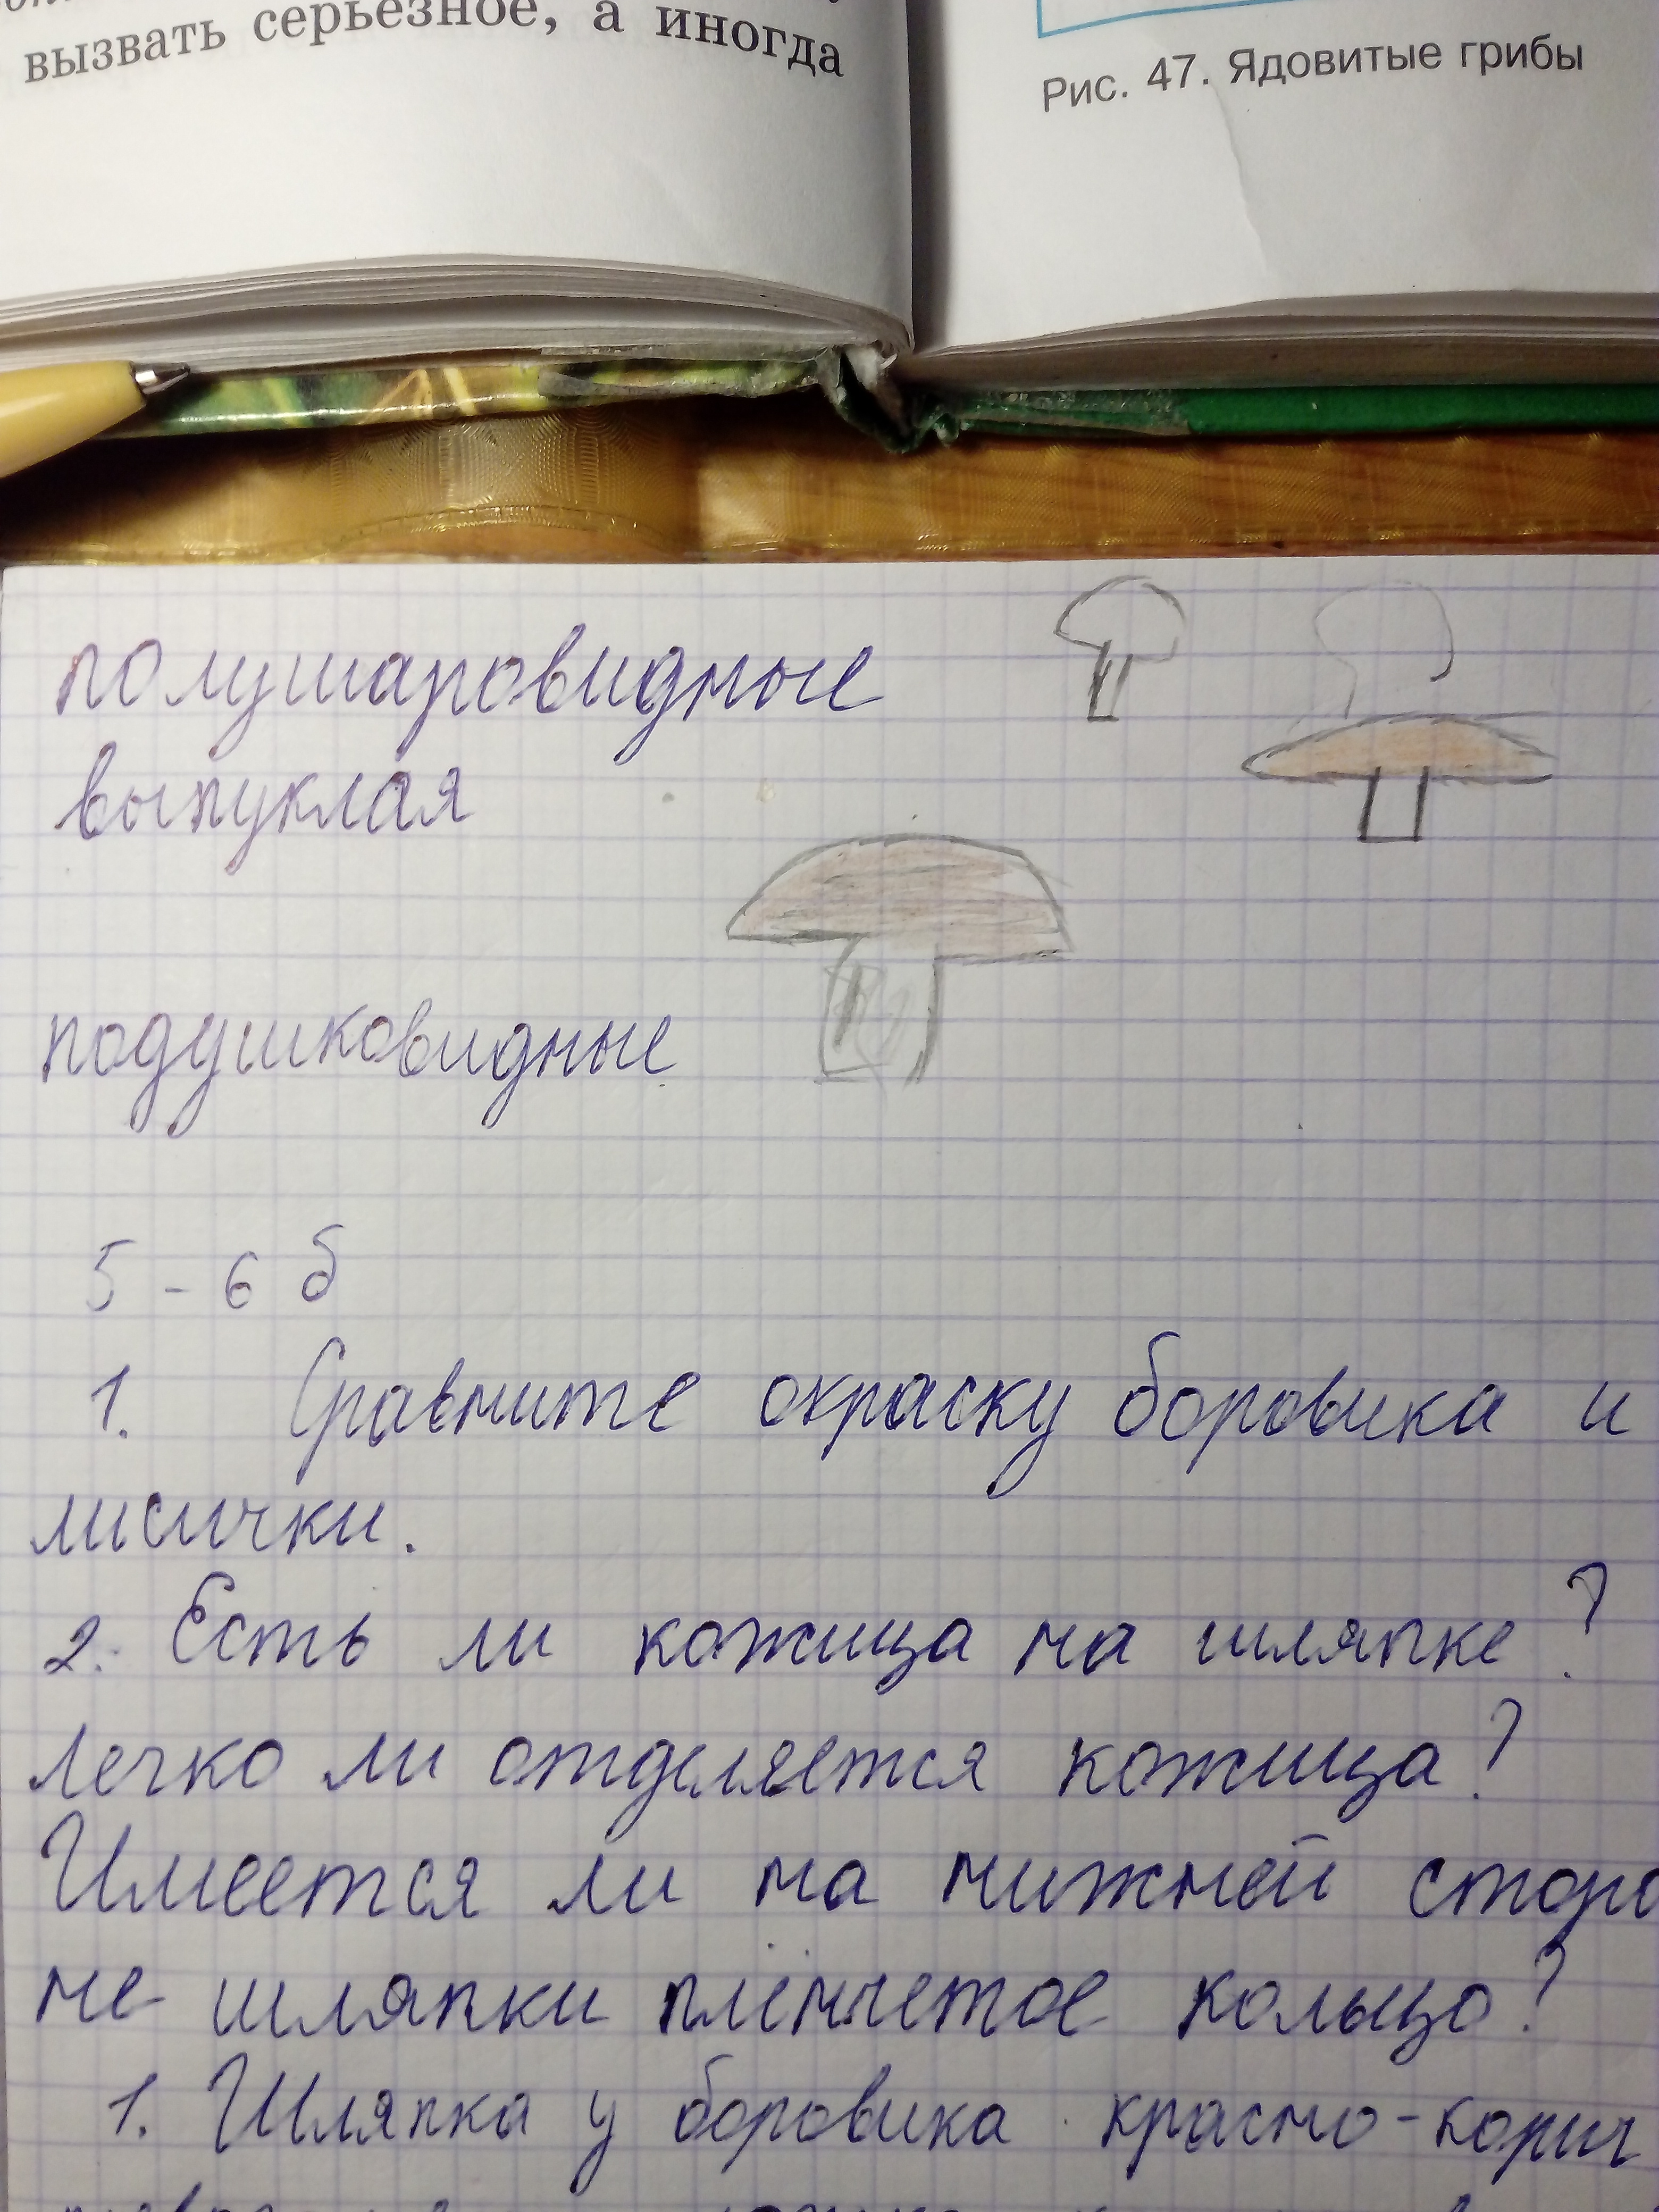 вызвать серьёзное, а иногда
Рис. 47. Ядовитые грибы
полушаровидные
выпуклая
подушковидные
5 - 6 б
1. Сравните окраску боровика и
лисички.
2. Есть ли кожица на шляпке?
легко ли отделяется кожица?
Имеется ли на нижней сторо
не шляпки плёнчетое кольцо?
1. Шляпка у боровика красно-корич